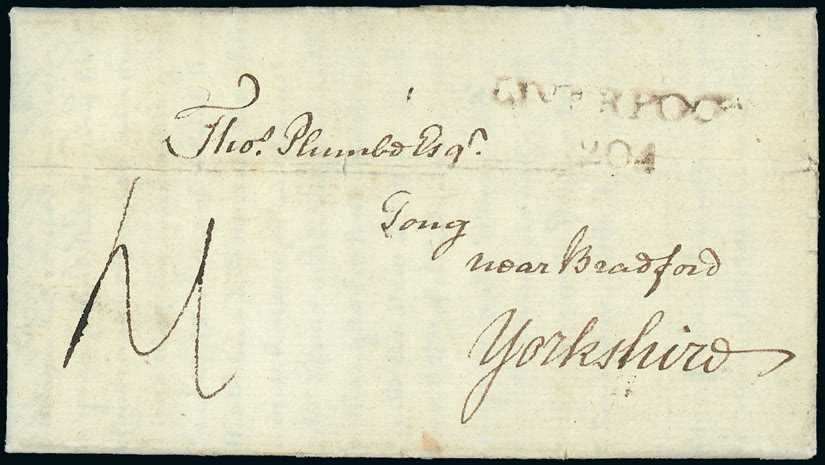 LIVERPOOL
204
Thos. Plumbe Esqr.
Tong
near Bradford
Yorkshire